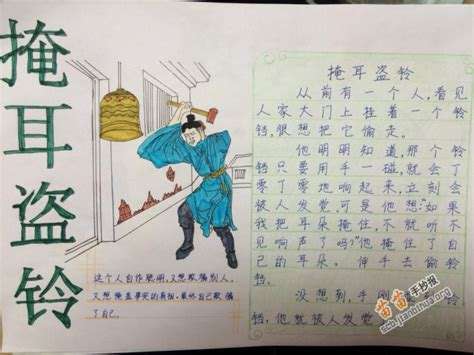 掩耳盗铃
掩耳盗铃
从前有一个人,看见
人家大门上挂着一个铃
铛很想把它偷走。
他明明知道,那个铃
铛只要用手一碰,就会丁
零丁零地响起来,立刻会
被人发觉,可是他想:"如果
我把耳朵掩住,不就听不
见响声了吗?"他掩住了自
己的耳朵。伸手去偷铃
铛。
没想到,手刚碰
铛,他就被人发觉
这个人自作聪明,又想欺骗别人,
又想掩盖事实的真相,最终自己欺骗
了自己。
苗苗手抄报
scb.jianbihua.org